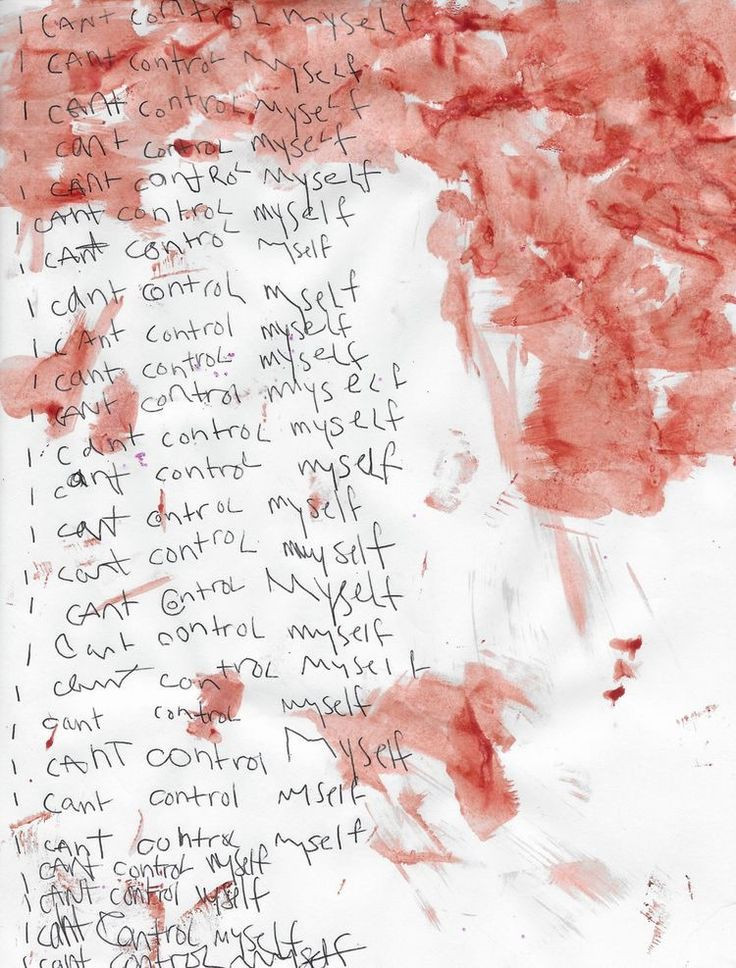 I CANT control Myself
I CANt control Myself
I CANt control Myself
I cant control myself
I CANt contRol Myself
I CANt control myself
I CANt control Myself
I cant control myself
I CAnt control myself
I cant control myself
I CANT control myself
I cant control myself
I cant control myself
I cant control myself
I cant control myself
I CANT control Myself
I Cant control myself
I cant control Myself
I cant control myself
I CANT control Myself
I cant control myself
I cANT control myself
I CANT control myself
I CANT control myself
I cant Control myself
I cant control myself